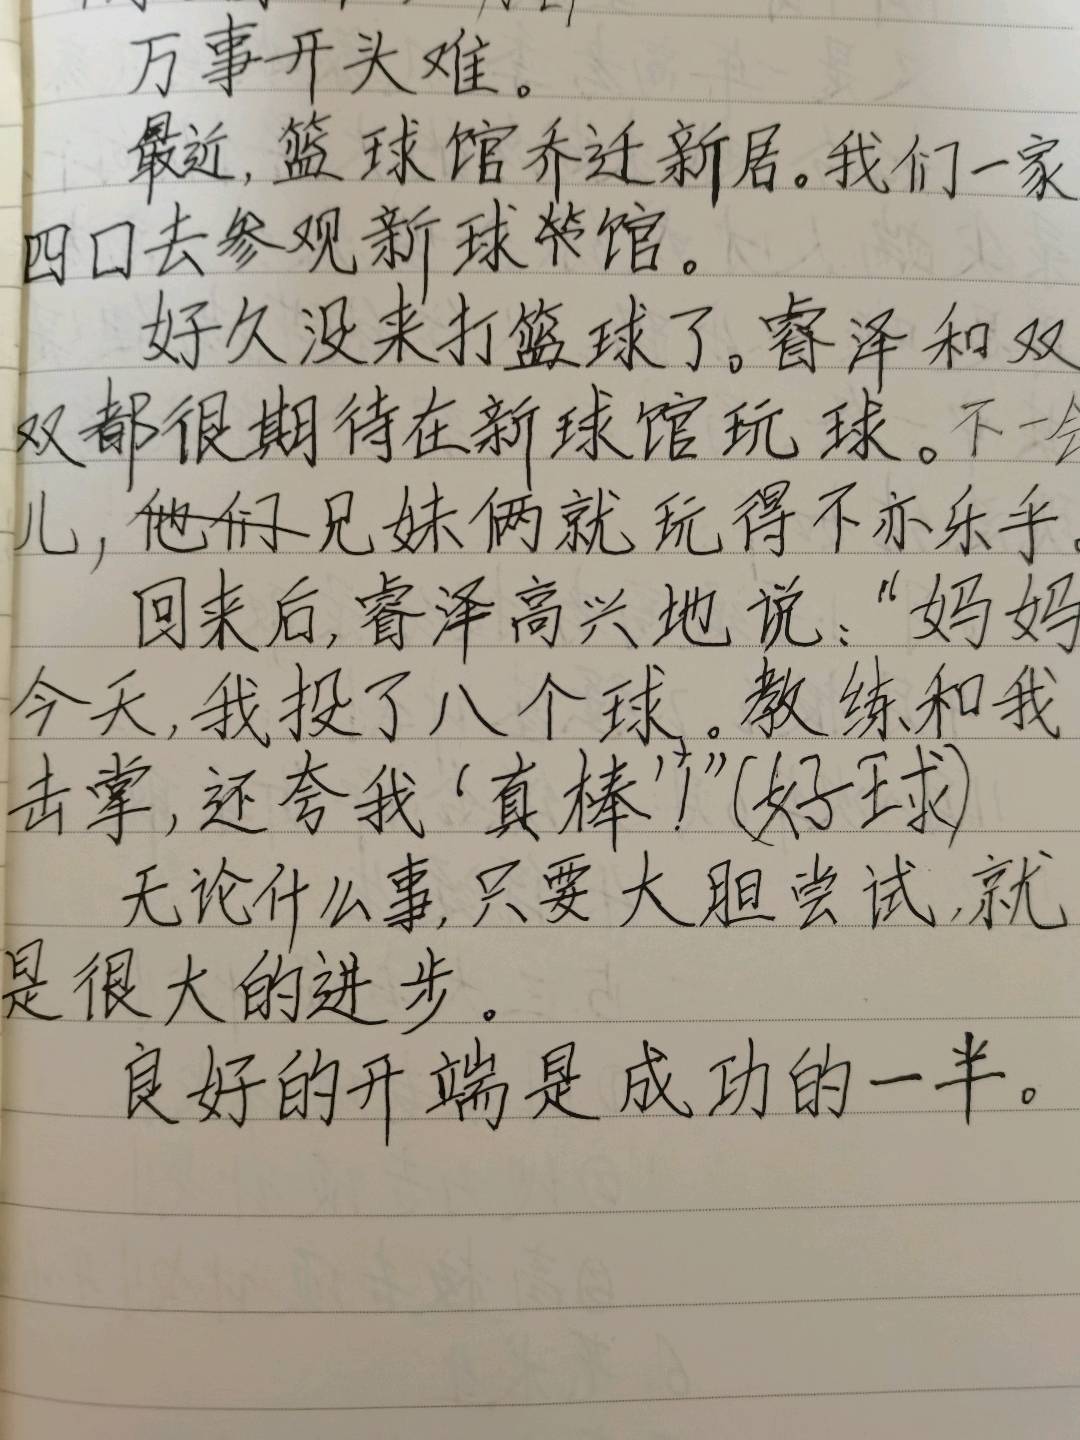 万事开头难。
最近,篮球馆乔迁新居。我们一家
四口去参观新球馆。
好久没来打篮球了。睿泽和双
双都很期待在新球馆玩球。不一会
儿,他们兄妹俩就玩得不亦乐乎。
回来后,睿泽高兴地说:“妈妈
今天,我投了八个球。教练和我
击掌,还夸我‘真棒’!”(好球)
无论什么事,只要大胆尝试,就
是很大的进步。
良好的开端是成功的一半。